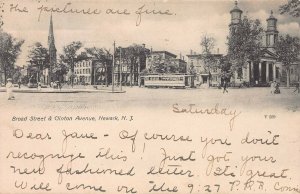 The pictures are fine
Broad Street & Clinton Avenue, Newark, N. J.
Saturday
Dear Jane - Of course you don't
recognize this Just got your
new fashioned letter. It's great.
Will come on the 9:27 P.R.R.